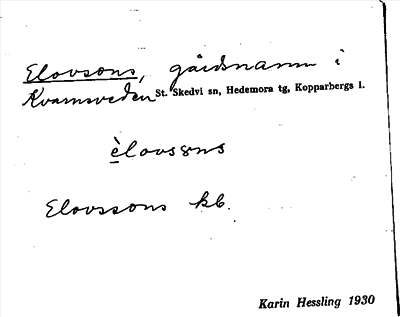 Elovsons, gårdsnamn i
Kvarnsveden St. Skedvi sn, Hedemora tg, Kopparbergs l.
èlovsons
Elovssons kb.
Karin Hessling 1930